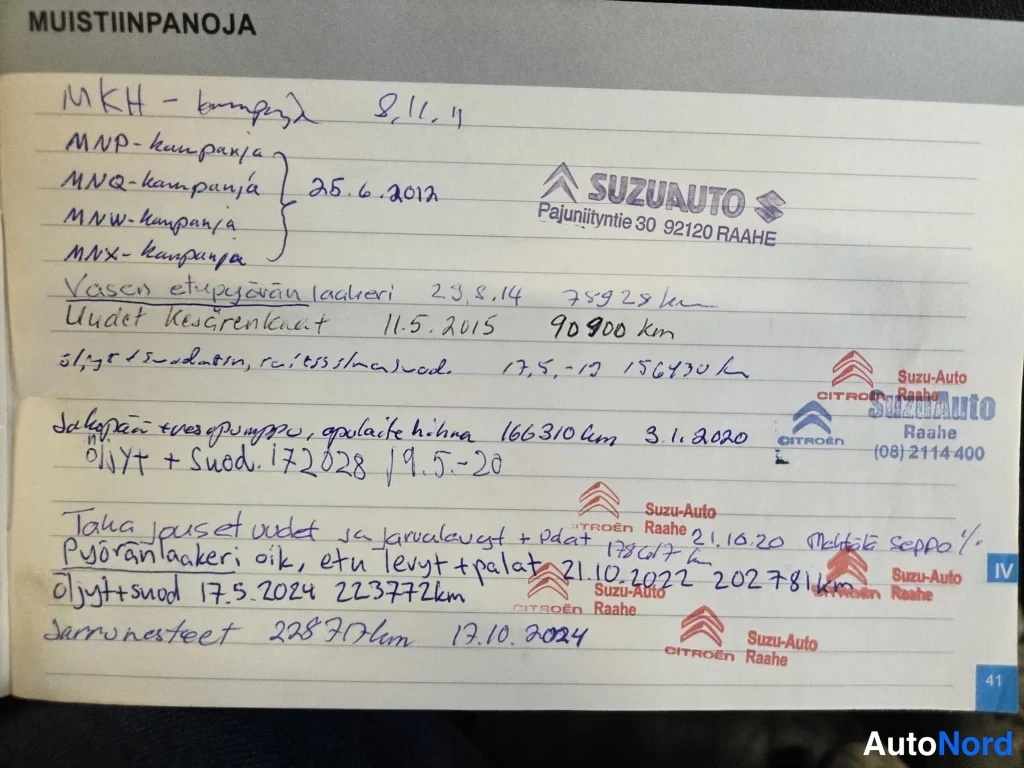 MUISTIINPANOJA
MKH - kampanja 8.11.11
MNP-kampanja
MNQ-kampanja 25.6.2012
MNW-kampanja
MNX-kampanja
SUZUAUTO
Pajuniityntie 30 92120 RAAHE
Vasen etupyörän laakeri 29.8.14 75928 km
Uudet Kesärenkaat 11.5.2015 90900 km
öljyt + suodatin, raitisilmasuod. 17.5.-19 156430 km
Suzu-Auto
CITROËN Raahe
SuzuAuto
CITROËN Raahe
(08) 2114 400
Jakopään + vesipumppu, apulaite hihna 166310 km 3.1.2020
öljyt + Suod. 172028 19.5.-20
Suzu-Auto
CITROËN Raahe
Taka jouset uudet ja jarrulevyt + palat 21.10.20 Seppo
178617 km
Pyöränlaakeri oik, etu levyt + palat 21.10.2022 202781km
Suzu-Auto
Raahe
IV
Öljyt + suod 17.5.2024 223772km
Suzu-Auto
CITROËN Raahe
Jarrunesteet 228717km 17.10.2024
Suzu-Auto
CITROËN Raahe
41
AutoNord